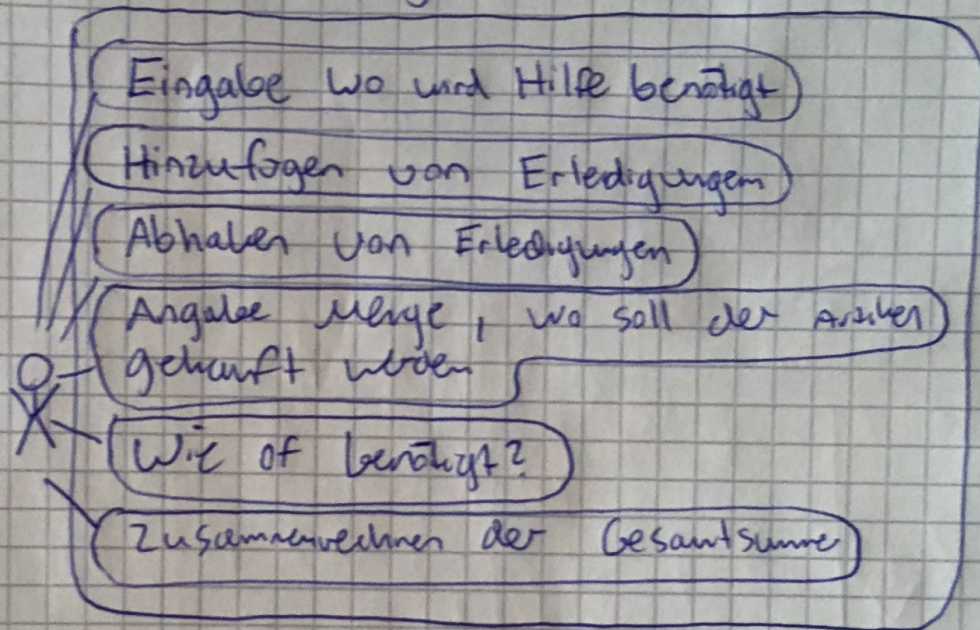 Eingabe wo wird Hilfe benötigt
Hinzufügen von Erledigungen
Abhaken von Erledigungen
Angabe Menge, wo soll der Artikel
gekauft werden
Wie of benötigt?
Zusammenrechnen der Gesamtsumme